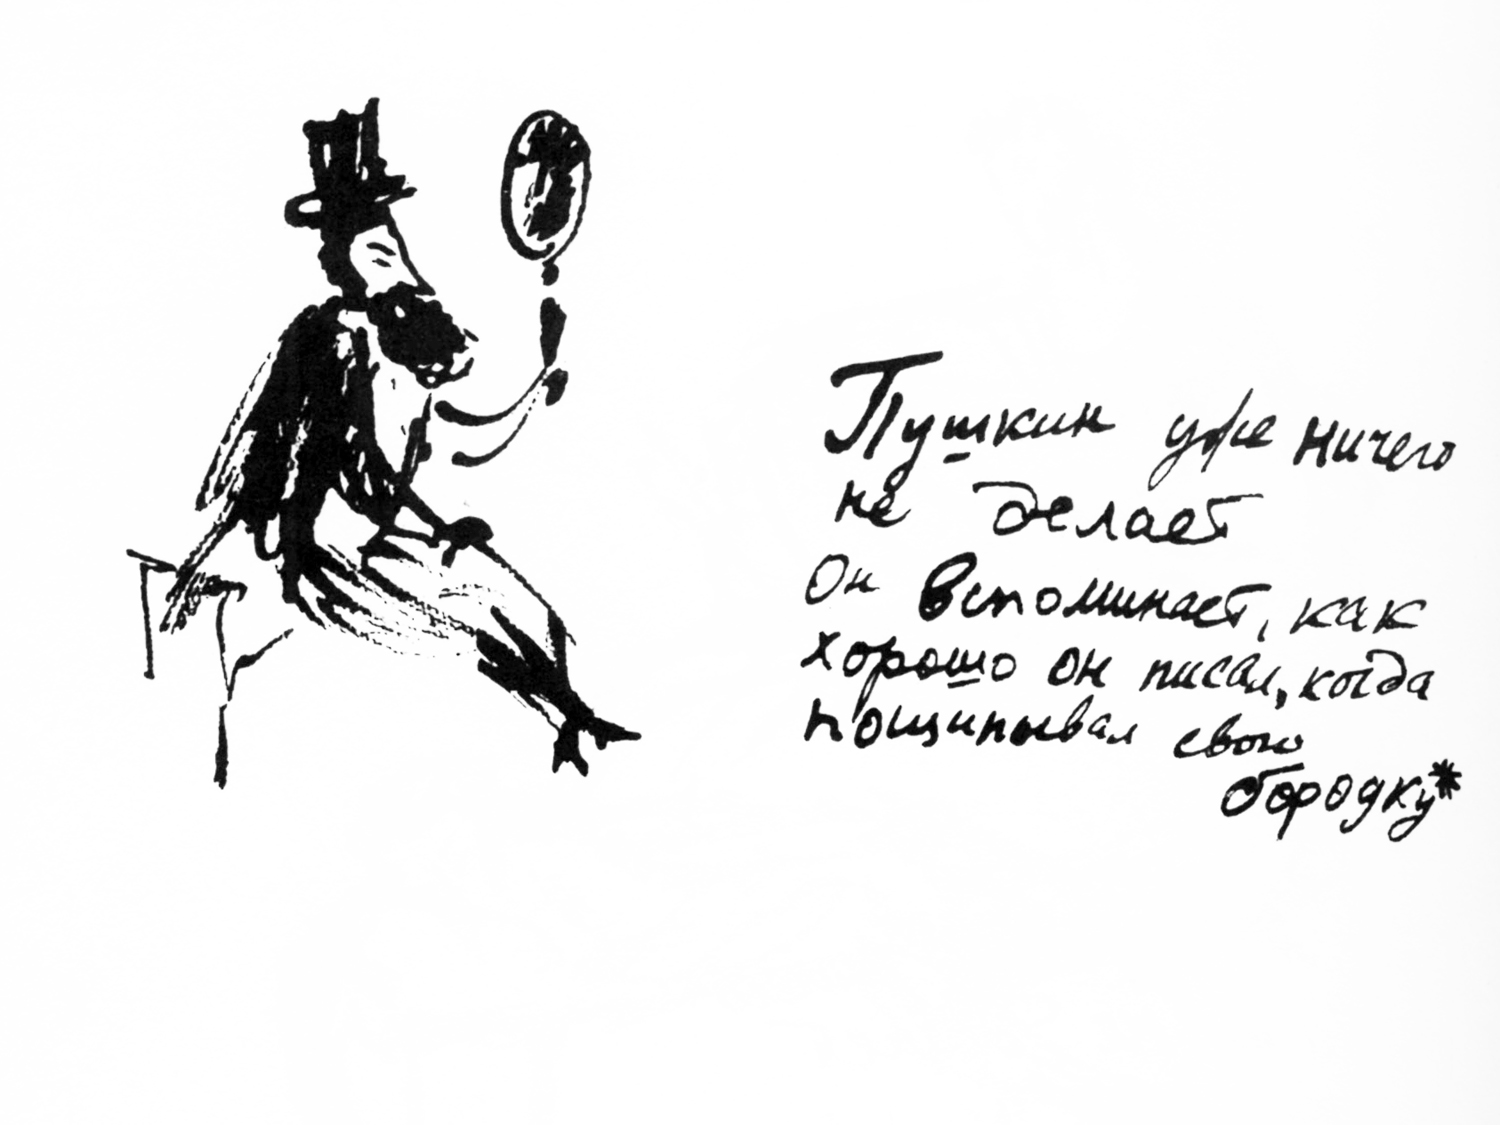 Пушкин уже ничего
не делает
Он вспоминает, как
хорошо он писал, когда
пощипывал свою
бородку*